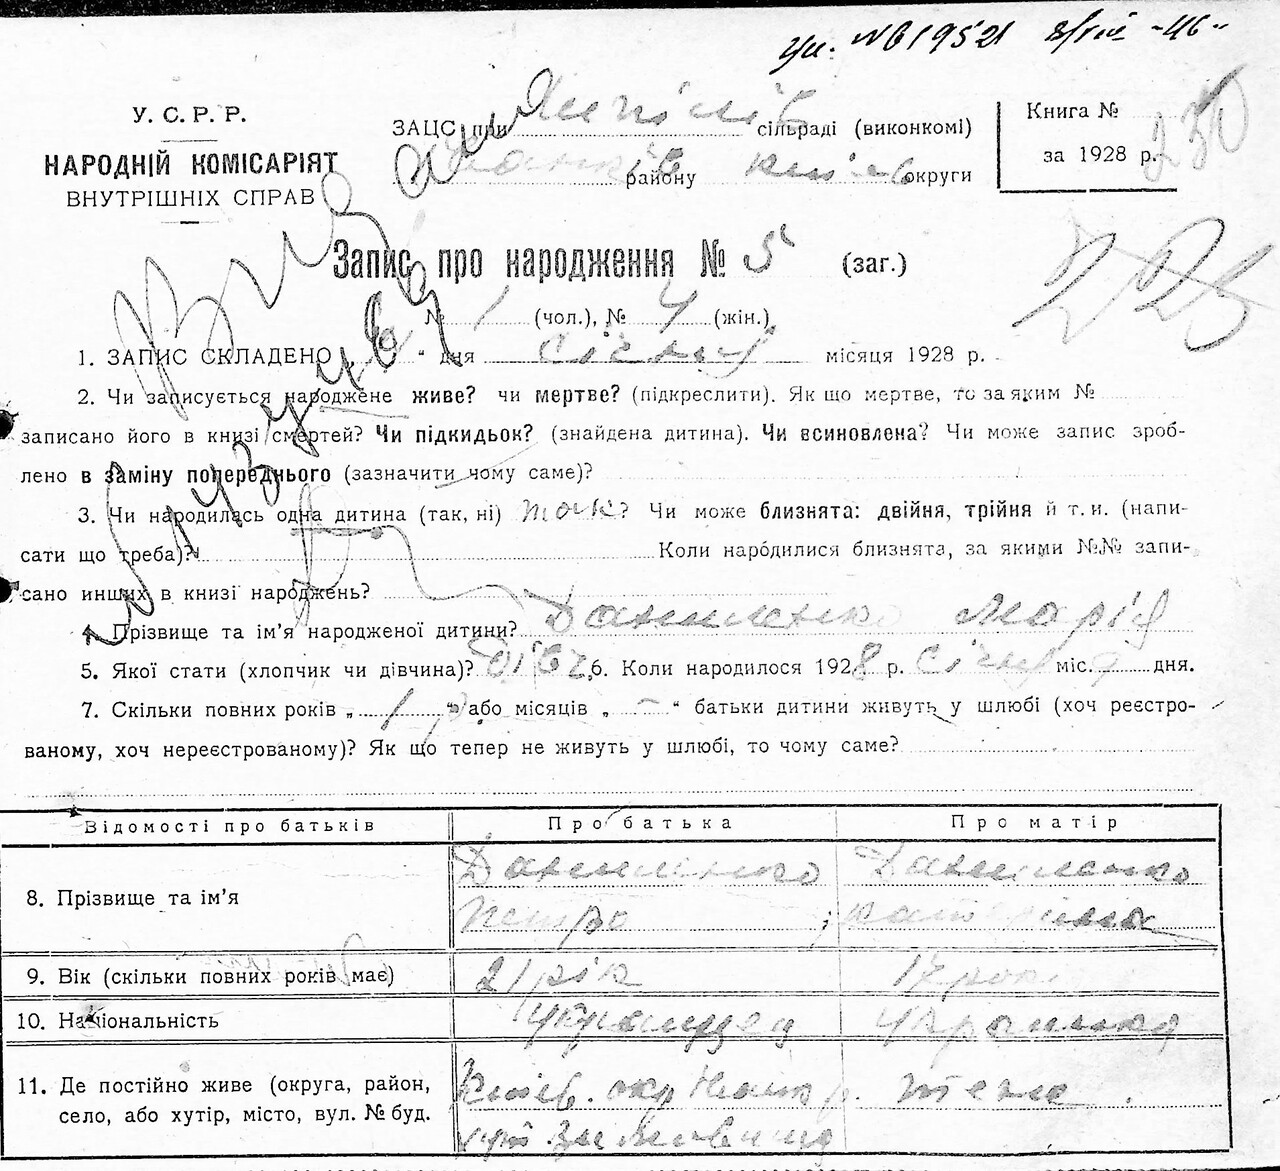 У. С. Р. Р.
НАРОДНІЙ КОМІСАРІЯТ
ВНУТРІШНІХ СПРАВ
ЗАЦС при сільраді (виконкомі)
району округи
Книга № 230
за 1928 р.
225
Запис про народження № 5 (заг.)
№ 1 (чол.), № 4 (жін.)
1. ЗАПИС СКЛАДЕНО „ “ дня січня місяця 1928 р.
2. Чи записується народжене живе? чи мертве? (підкреслити). Як що мертве, то за яким №
записано його в книзі смертей? Чи підкидьок? (знайдена дитина). Чи всиновлена? Чи може запис зроб-
лено в заміну попереднього (зазначити чому саме)?
3. Чи народилась одна дитина (так, ні) так? Чи може близнята: двійня, трійня й т. и. (напи-
сати що треба)? Коли народилися близнята, за якими №№ запи-
сано инших в книзі народжень?
4. Прізвище та ім’я народженої дитини? Даниленко Марія
5. Якої стати (хлопчик чи дівчина)? дівч. 6. Коли народилося 1928 р. січня міс. дня.
7. Скільки повних років „ 1 “ або місяців „ - “ батьки дитини живуть у шлюбі (хоч реєстро-
ваному, хоч нереєстрованому)? Як що тепер не живуть у шлюбі, то чому саме?
Відомості про батьків Про батька Про матір
8. Прізвище та ім’я Даниленко Петро Даниленко Катерина
9. Вік (скільки повних років має) 21 рік 17 рок
10. Національність Українець Українка
11. Де постійно живе (округа, район, Київ. окр теж
село, або хутір, місто, вул. № буд. хут